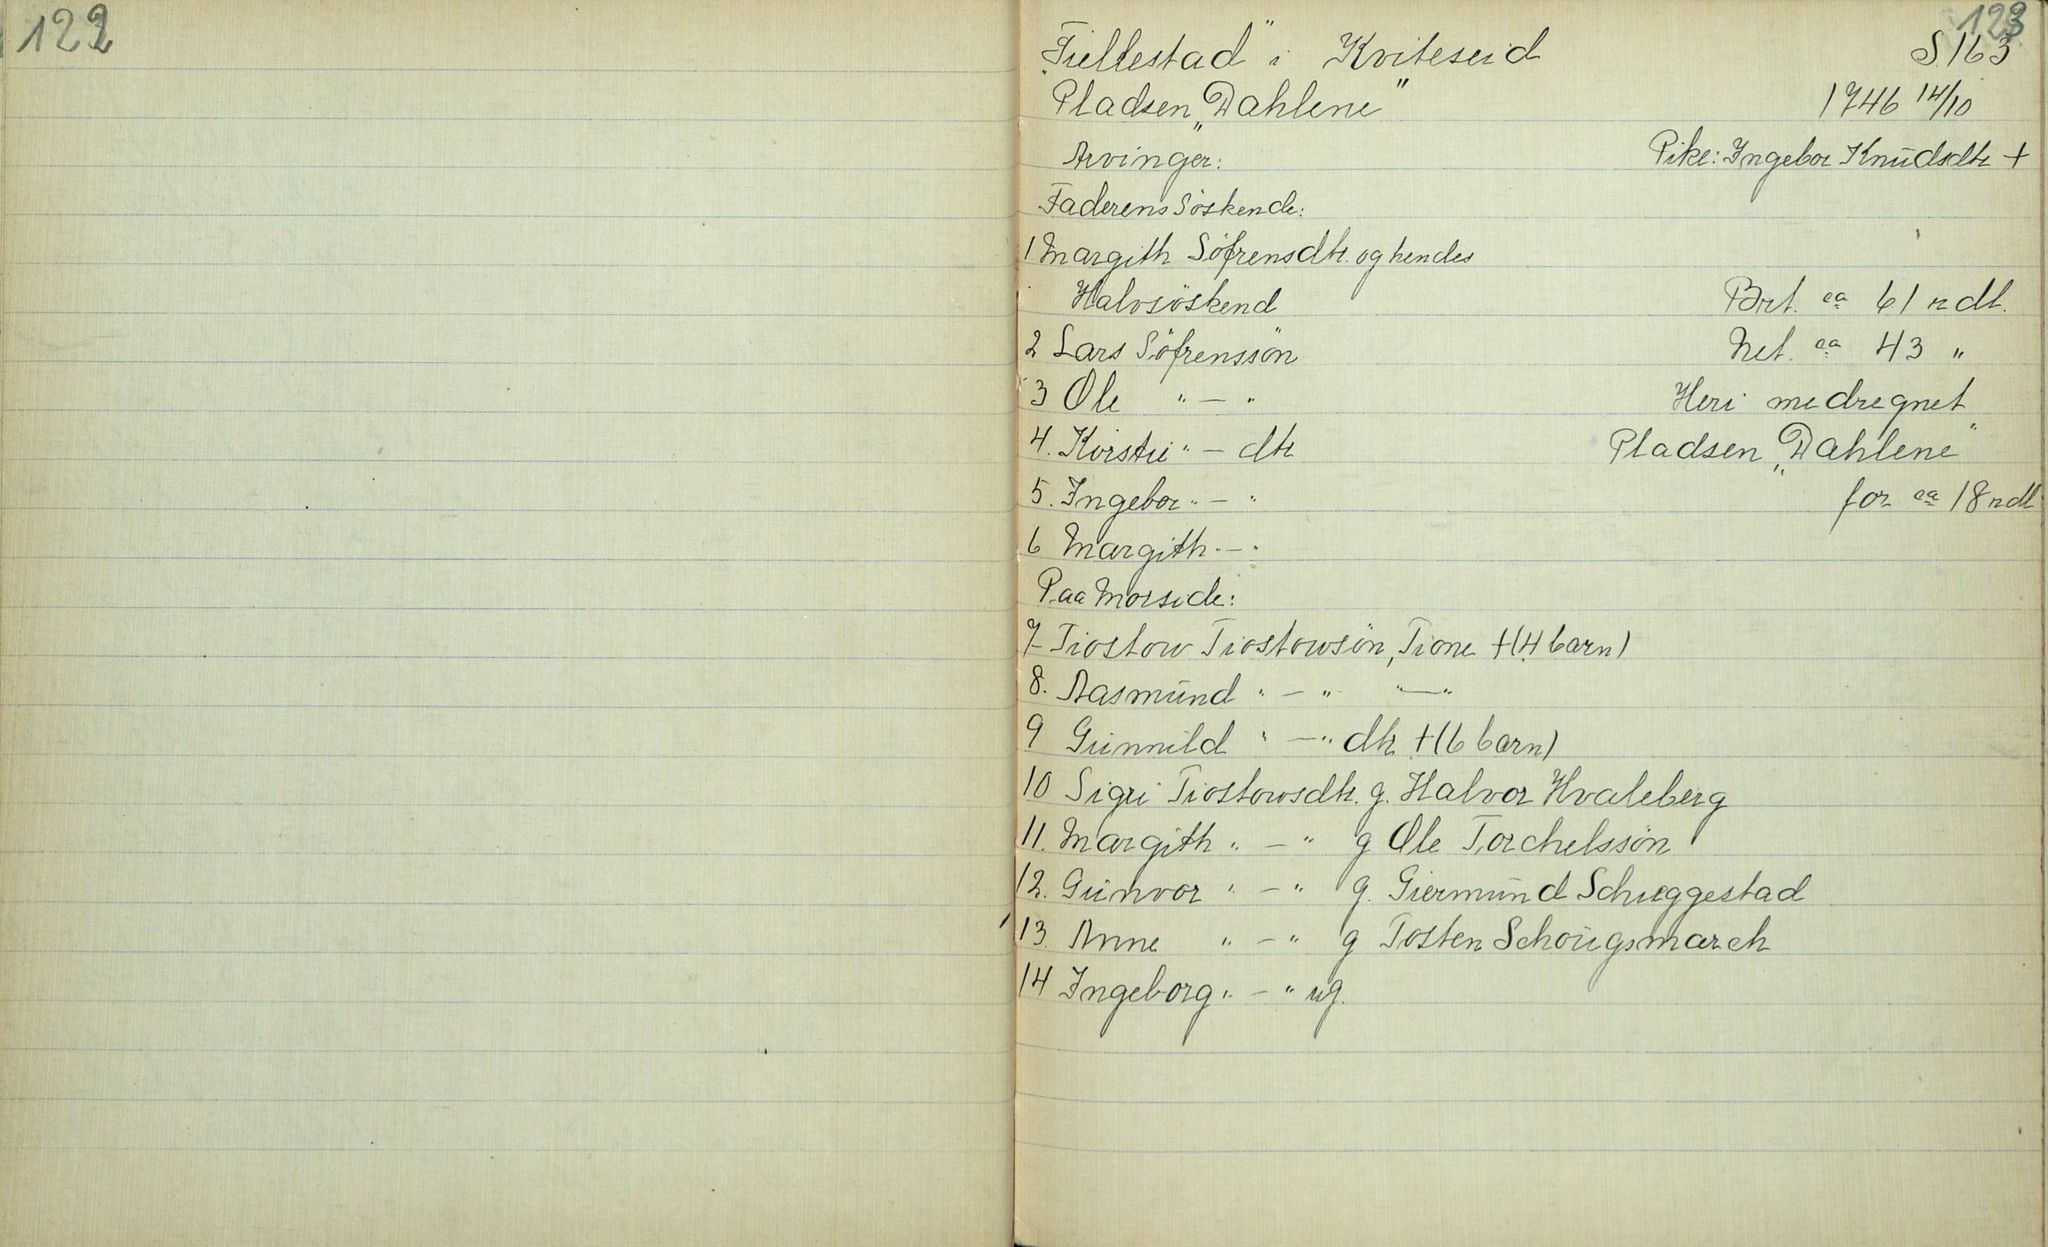 122
123
„Fiellestad" i Kviteseid S. 163
Pladsen „Dahlene" 1746 14/10
Arvinger: Pike: Ingebor Knudsdtr +
Faderens Söskende:
1 Margith Söfrensdtr. og hendes
Halvsöskend Brt. ca 61 rdl.
2 Lars Söfrenssön Net. ca 43 "
3 Ole " — " Heri medregnet
4. Kirstie " — dtr Pladsen „Dahlene"
5. Ingebor " — " for ca 18 rdl
6 Margith " — "
Paa Morside:
7 Tiostow Tiostowsön, Tione + (4 barn)
8. Aasmund " — " " — "
9 Gunnild " — " dtr + (6 barn)
10 Sigri Tiostowsdtr. g. Halvor Hvaleberg
11. Margith " — " g Ole Torchelssön
12. Gunvor " — " g. Giermund Schreggestad
13. Anne " — " g Tosten Schougsmarch
14 Ingeborg " — " ug.